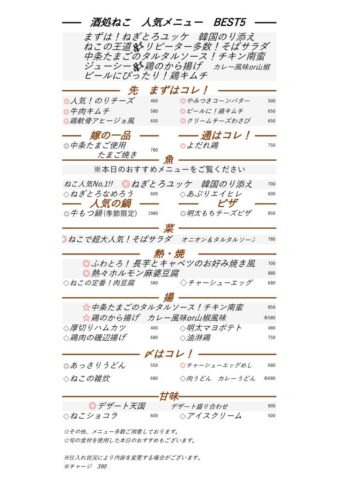 酒処ねこ 人気メニュー BEST5
まずは！ねぎとろユッケ 韓国のり添え
ねこの王道🐈リピーター多数！そばサラダ
中条たまごのタルタルソース！チキン南蛮
ジューシー🐈鶏のから揚げ カレー風味or山椒
ビールにぴったり！鶏キムチ
先 まずはコレ！
◎人気！のりチーズ 400 ◎やみつきコーンバター 500
◎牛肉キムチ 580 ◎ビールに！鶏キムチ 650
◎鶏軟骨アヒージョ風 650 ◎クリームチーズわさび 650
嫁の一品 通はコレ！
◎中条たまご使用
たまご焼き 780
◎よだれ鶏 750
魚
※本日のおすすめメニューをご覧ください
ねこ人気No.1!! ◎ねぎとろユッケ 韓国のり添え 700
◇ねぎとろなめろう 600 ◇あぶりエイヒレ 600
人気の鍋 ピザ
◎牛もつ鍋(季節限定) 1980 ◎明太もちチーズピザ 850
菜
◎ねこで超大人気！そばサラダ オニオン＆タルタルソース 780
熱・焼
◎ふわとろ！長芋とキャベツのお好み焼き風 700
◎熱々ホルモン麻婆豆腐 880
◇ねこの定番！肉豆腐 580 ◇チャーシューエッグ 680
揚
☆中条たまごのタルタルソース！チキン南蛮 850
☆鶏のから揚げ カレー風味or山椒風味 各580
◇厚切りハムカツ 400 ◇明太マヨポテト 480
◇鶏肉の磯辺揚げ 680 ◇油淋鶏 750
〆はコレ！
◎あっさりうどん 550 ◎チャーシューエッグめし 680
◇ねこの雑炊 680 ◇肉うどん カレーうどん 各680
甘味
◎デザート天国 デザート盛り合わせ 900
◇ねこショコラ 600 ◇アイスクリーム 500
☆その他、メニュー多数ご用意しております。
☆旬の食材を使用した本日のおすすめもございます。
※仕入れ状況により内容を変更する場合がございます。
※チャージ 390